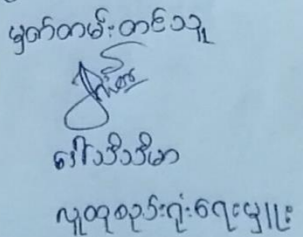 မှတ်တမ်းတင်သူ
ဒေါ်သီသီမာ
လူထုစည်းရုံးရေးမှူး